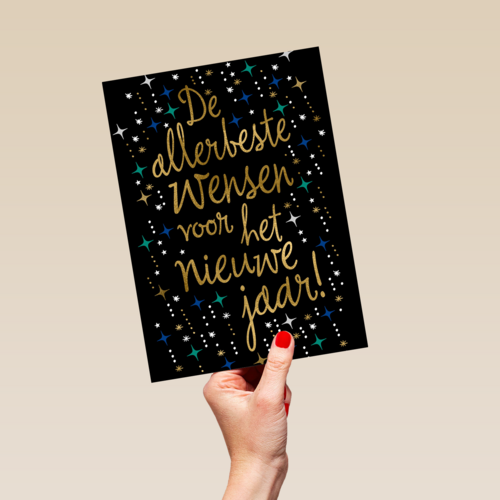 De
allerbeste
wensen
voor het
nieuwe
jaar!